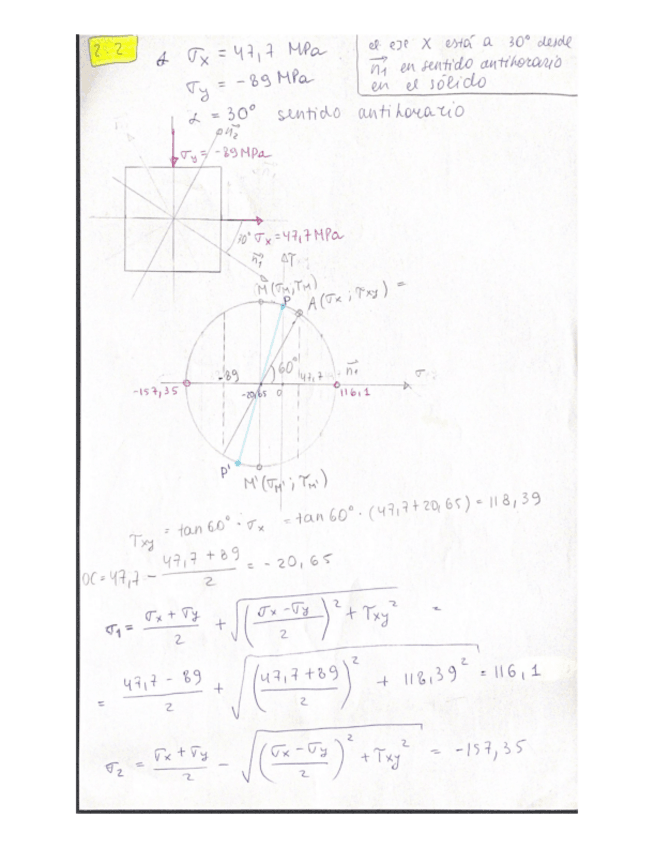 2.2
σx = 47,7 MPa
σy = -89 MPa
α = 30° sentido antihorario
el eje X está a 30° desde
n1 en sentido antihorario
en el sólido
n2
σy = -89 MPa
30° σx = 47,7 MPa
n1
τ
M(σM, τM)
P
A(σx ; τxy) =
60°
-89
47,7
n1
σ
-157,35
-20,65
0
116,1
P'
M'(σM' ; τM')
τxy = tan 60° · σx = tan 60° · (47,7+20,65) = 118,39
OC = 47,7 - (47,7 + 89)/2 = -20,65
σ1 = (σx + σy)/2 + √(((σx - σy)/2)² + τxy²) =
= (47,7 - 89)/2 + √(((47,7 + 89)/2)² + 118,39²) = 116,1
σ2 = (σx + σy)/2 - √(((σx - σy)/2)² + τxy²) = -157,35